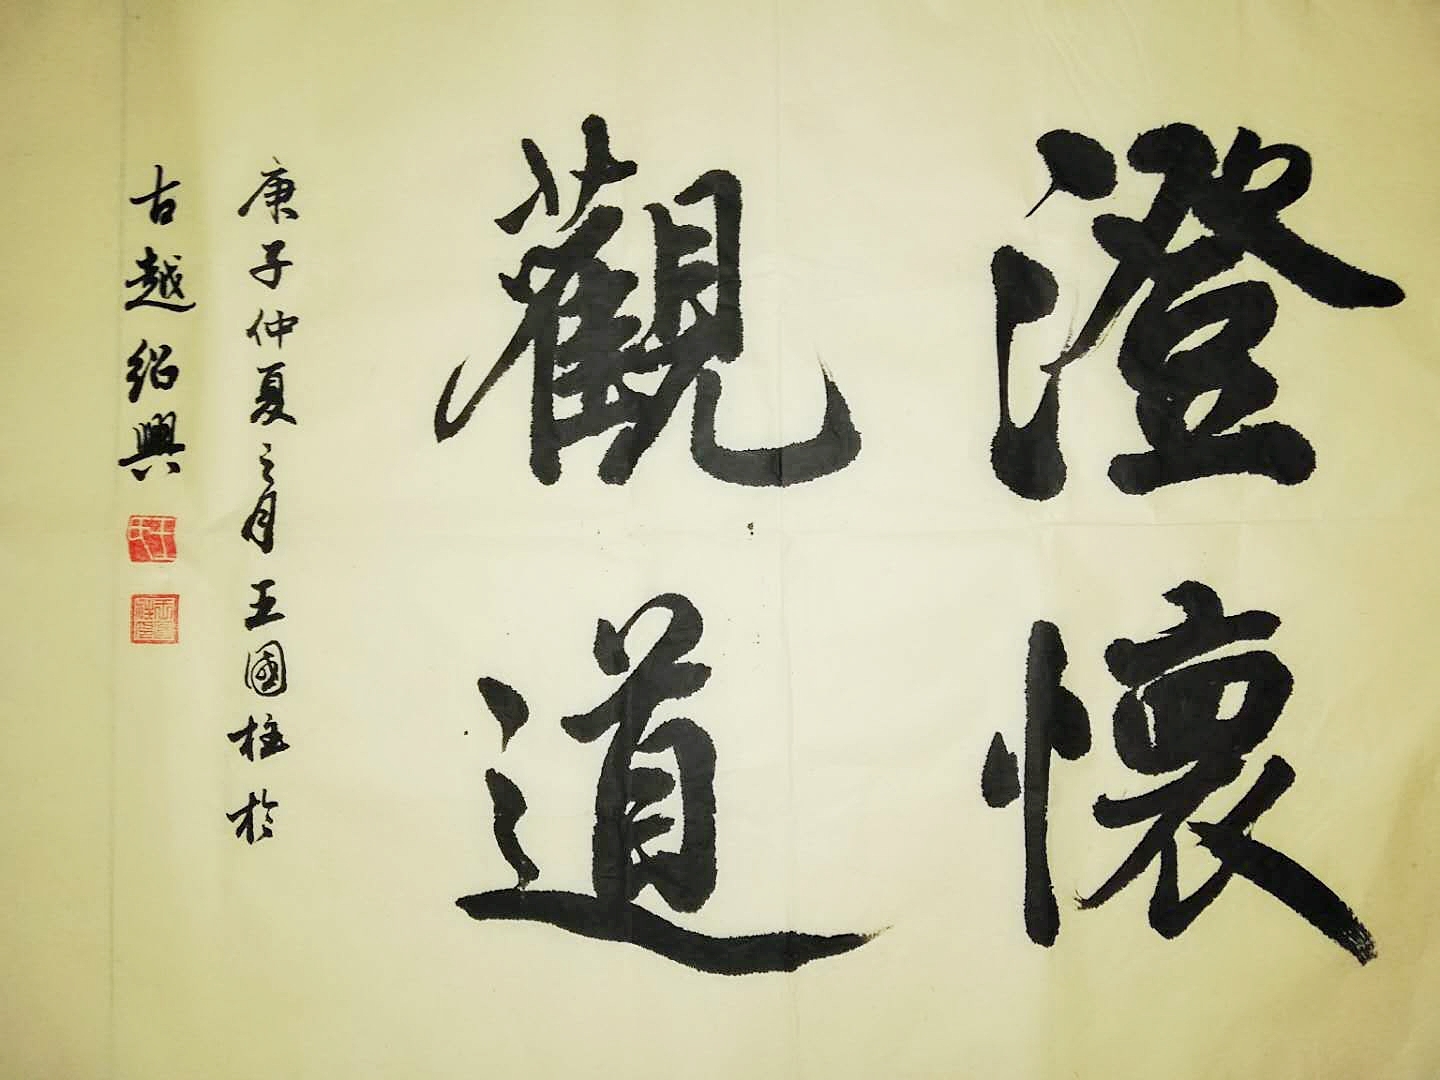 澄懷
觀道
庚子仲夏之月王國柱於
古越紹興